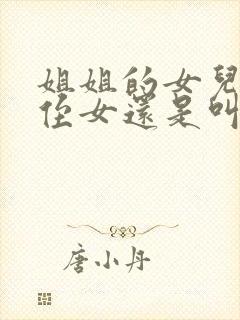 姐姐的女兒
侄女還是叫
唐小丹